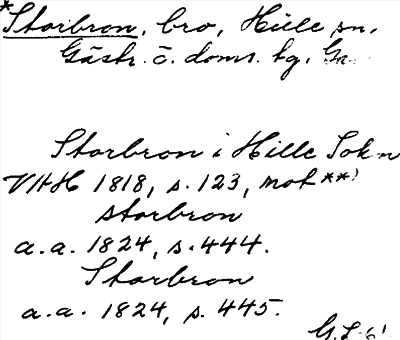 *Storbron, bro, Hille sn,
Gästr. ö. doms. tg. Gä.
Storbron i Hille Sokn
VHH 1818, s. 123, mot **)
storbron
a.a. 1824, s. 444.
Storbron
a.a. 1824, s. 445.